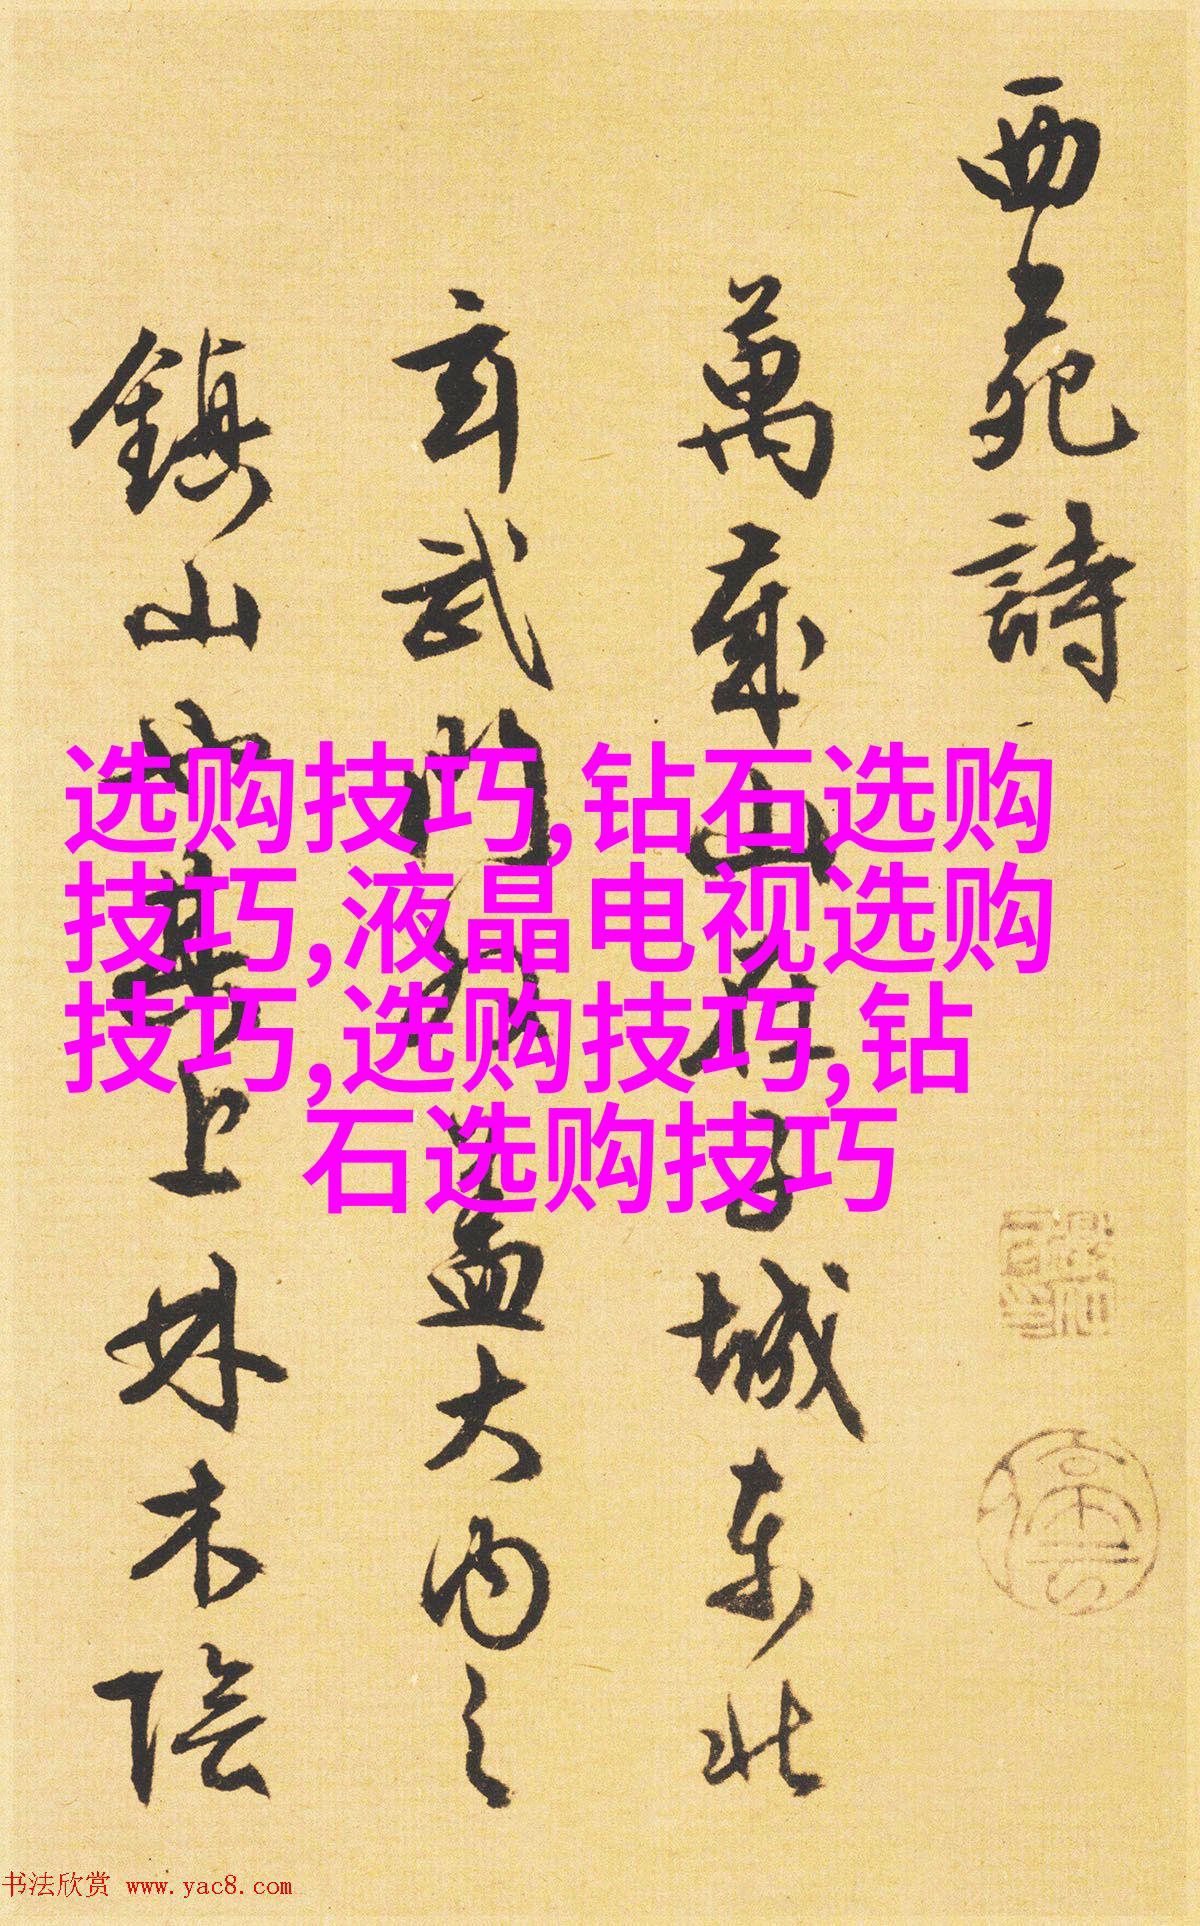 西苑詩
萬歲山在子城東北
玄武門外蓋大內之
鎮山也其上林木陰
选购技巧,钻石选购
技巧,液晶电视选购
技巧,选购技巧,钻
石选购技巧
书法欣赏 www.yac8.com